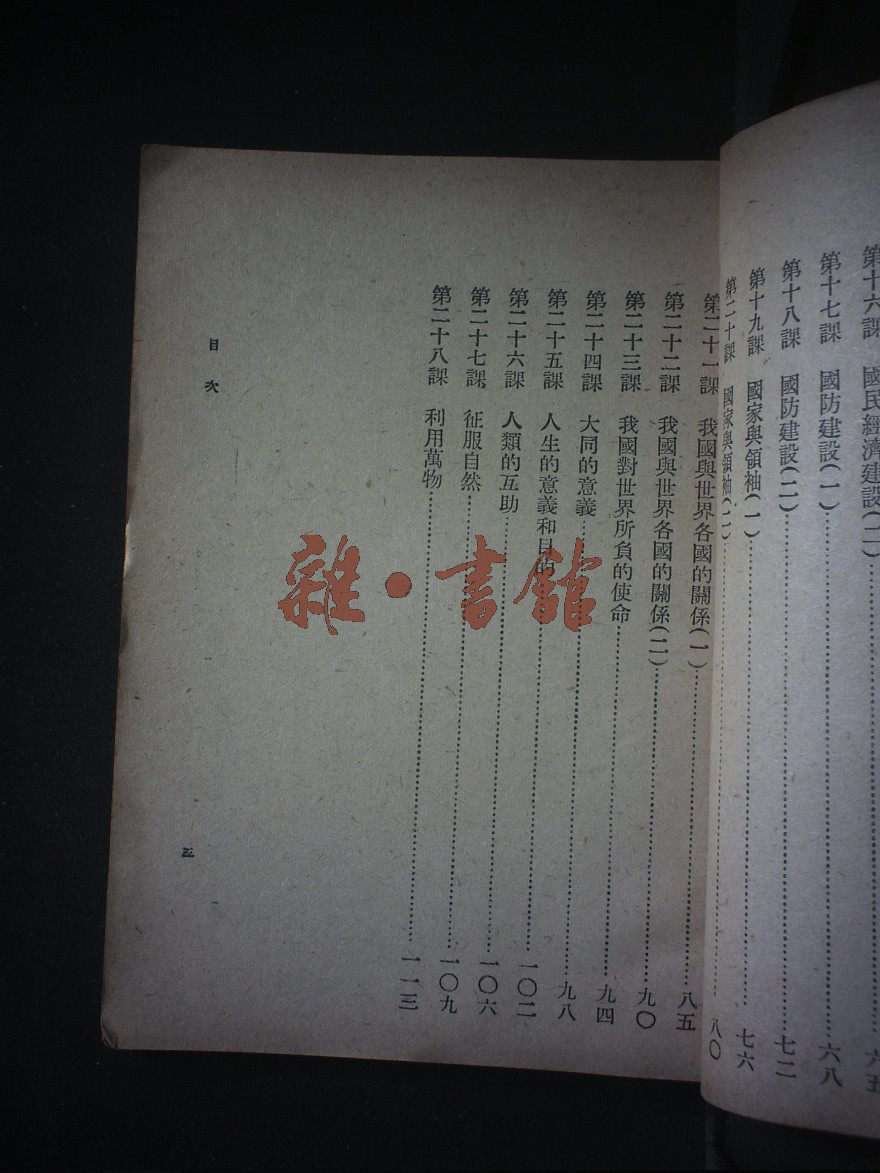 第十六課 國民經濟建設(二)……六五
第十七課 國防建設(一)……六八
第十八課 國防建設(二)……七二
第十九課 國家與領袖(一)……七六
第二十課 國家與領袖(二)……八〇
第二十一課 我國與世界各國的關係(一)……八五
第二十二課 我國與世界各國的關係(二)……九〇
第二十三課 我國對世界所負的使命……九四
第二十四課 大同的意義……九八
第二十五課 人生的意義和目的……一〇二
第二十六課 人類的互助……一〇六
第二十七課 征服自然……一〇九
第二十八課 利用萬物……一一三
目次
三
雜·書館